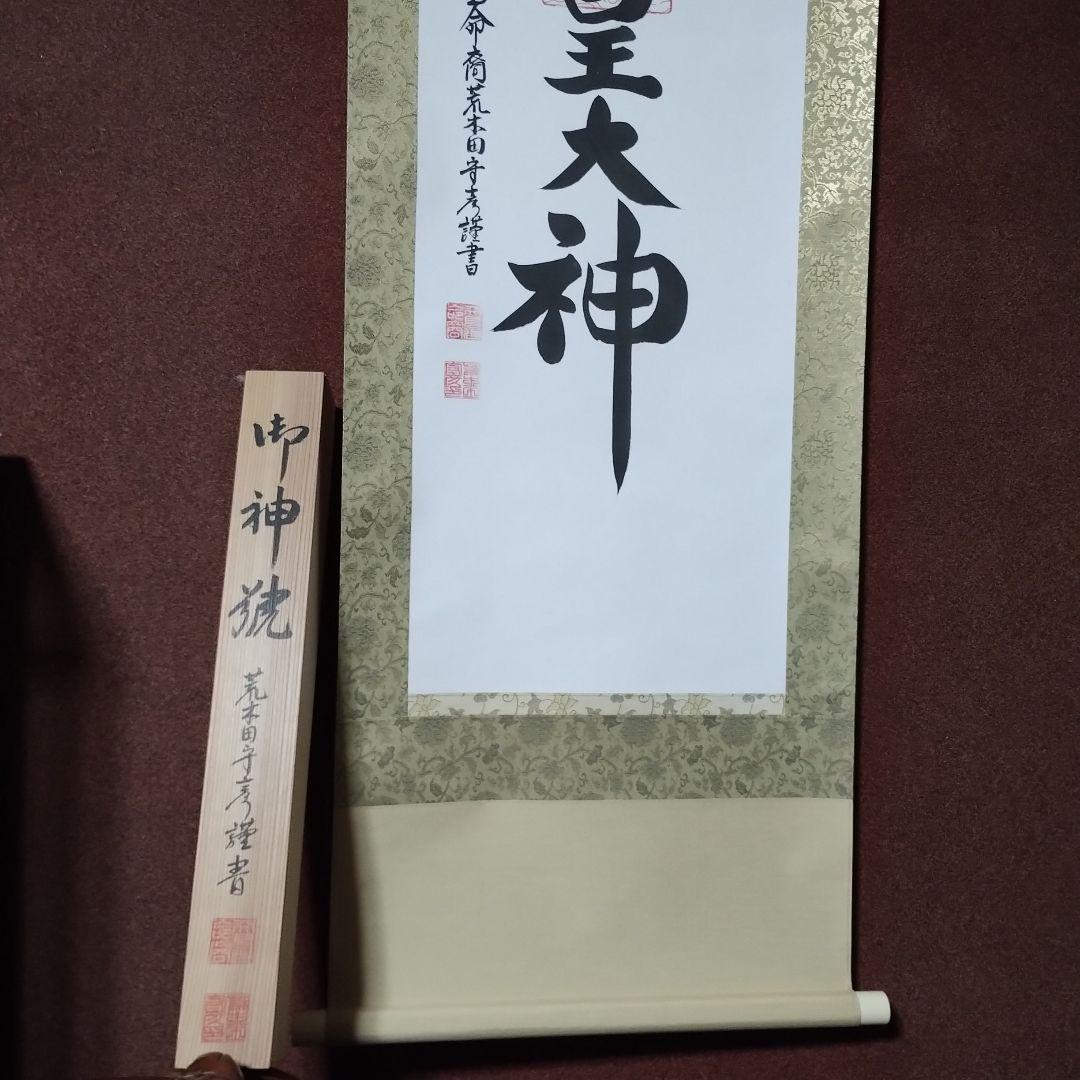 皇大神
命裔荒木田守彦謹書
御神號
荒木田守彦謹書